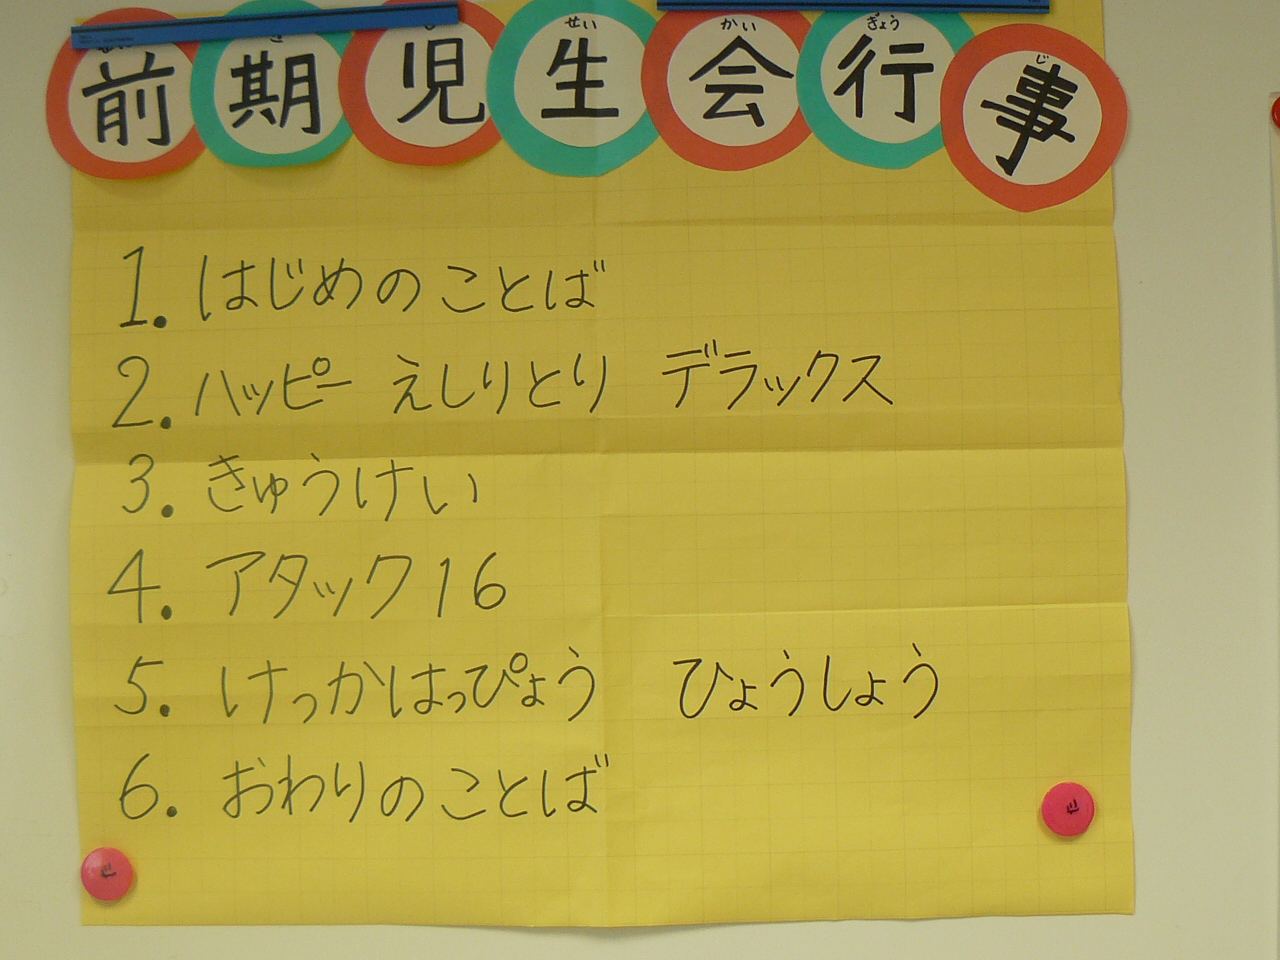 前期児生会行事
せい かい ぎょう じ
1. はじめのことば
2. ハッピー えしりとり デラックス
3. きゅうけい
4. アタック16
5. けっかはっぴょう ひょうしょう
6. おわりのことば